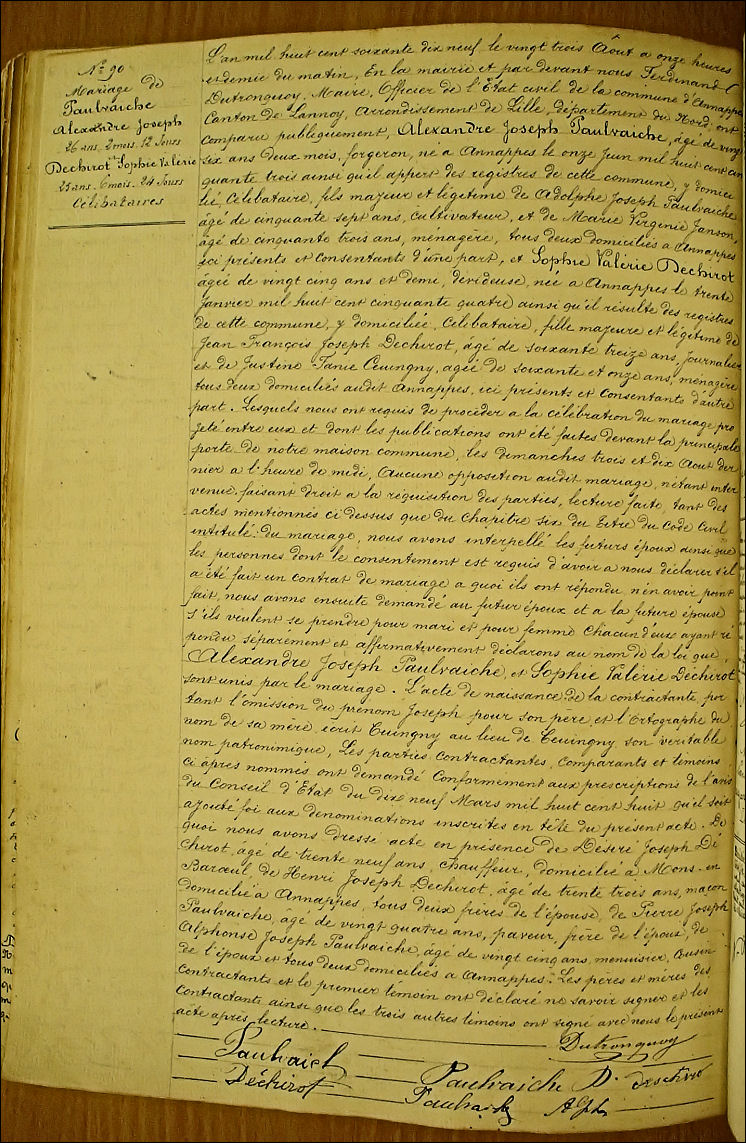 N° 90
Mariage de
Paulvaiche
Alexandre Joseph
26 ans. 2 mois. 12 Jours
Dechirot Sophie Valérie
25 ans. 6 mois. 24 Jours
Célibataires
L'an mil huit cent soixante dix neuf, le vingt trois Août a onze heures
et demie du matin, En la mairie et par devant nous Ferdinand
Dutronquoy, Maire, Officier de l'Etat civil de la commune d'Annappes
Canton de Lannoy, Arrondissement de Lille, département du Nord, ont
comparu publiquement, Alexandre Joseph Paulvaiche, âgé de vingt
six ans deux mois, forgeron, né a Annappes le onze Juin mil huit cent cin
quante trois ainsi qu'il appert des registres de cette commune, y domici
lié, Célibataire, fils majeur et légitime de Adolphe Joseph Paulvaiche
âgé de cinquante sept ans, cultivateur, et de Marie Virginie Janson,
âgée de cinquante trois ans, ménagère, tous deux domiciliés a Annappes
ici présents et consentants d'une part, et Sophie Valérie Dechirot
âgée de vingt cinq ans et demi, dévideuse, née a Annappes le trente
Janvier mil huit cent cinquante quatre, ainsi qu'il résulte des registres
de cette commune, y domiciliée, Célibataire, fille majeure et légitime de
Jean François Joseph Dechirot, âgé de soixante treize ans, Journalier
et de Justine Ceuingny, agée de soixante et onze ans, ménagère
tous deux domiciliés audit Annappes, ici présents et Consentants d'autre
part. Lesquels nous ont requis de procéder a la célébration du mariage pro
jeté entre eux et dont les publications ont été faites devant la principale
porte de notre maison commune, les dimanches trois et dix Aout der
nier a l'heure de midi, Aucune opposition audit mariage, n'étant inter
venue, faisant droit a la réquisition des parties, lecture faite, tant des
actes mentionnés ci dessus que du Chapitre six du titre du Code Civil
intitulé: du mariage, nous avons interpellé les futurs époux ainsi que
les personnes dont le consentement est requis d'avoir a nous déclarer s'il
a été fait un contrat de mariage a quoi ils ont répondu n'en avoir point
fait, nous avons ensuite demandé au futur époux et a la future épouse
s'ils veulent se prendre pour mari et pour femme chacun d'eux ayant ré
pondu séparément et affirmativement déclarons au nom de la loi que
Alexandre Joseph Paulvaiche, et Sophie Valérie Dechirot
sont unis par le mariage. L'acte de naissance de la contractante, por
tant l'omission du prénom Joseph pour son père, et l'Ortographe du
nom de sa mère, écrit Cuingny au lieu de Ceuingny son veritable
nom patronimique, Les parties contractantes, comparants et témoins
ci après nommés ont demandé Conformément aux prescriptions de l'avis
du Conseil d'Etat du dix neuf Mars mil huit cent huit qu'il soit
ajouté foi aux denominations inscrites en tête du présent acte. De
quoi nous avons dressé acte en présence de Désiré Joseph Dé
chirot, âgé de trente neuf ans, chauffeur, domicilié à Mons-en
Barœul, de Henri Joseph Dechirot, âgé de trente trois ans, maçon
domicilié a Annappes, tous deux frères de l'épouse, de Pierre Joseph
Paulvaiche, agé de vingt quatre ans, paveur, frère de l'époux, de
Alphonse Joseph Paulvaiche, âgé de vingt cinq ans, menuisier, cousin
de l'époux et tous deux domiciliés a Annappes. Les pères et mères des
contractants et le premier témoin ont déclaré ne savoir signer et les
contractants ainsi que les trois autres témoins ont signé avec nous le présent
acte après lecture.
Dutronquoy
Paulvaich
Paulvaiche D. deschirot
Déchirot
Paulvaich